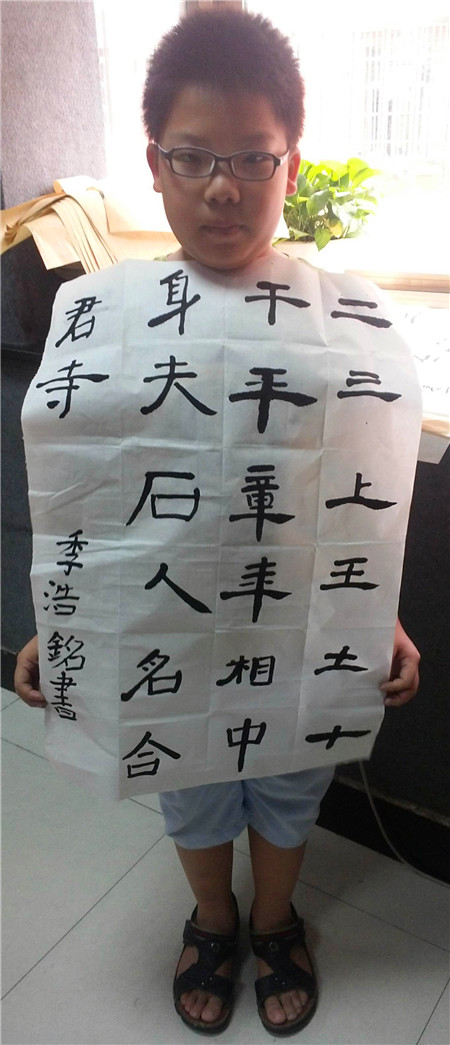 二三上王土十
干平章丰相中
身夫石人名合
君寺
季浩銘書